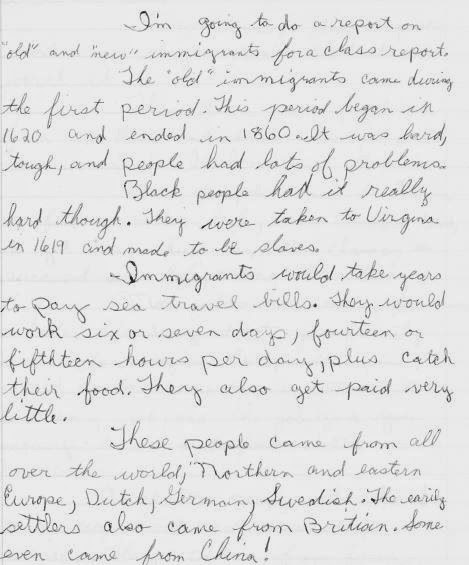 I'm going to do a report on
"old" and "new" immigrants for a class report.
The "old" immigrants came during
the first period. This period began in
1620 and ended in 1860. It was hard,
tough, and people had lots of problems.
Black people had it really
hard though. They were taken to Virgina
in 1619 and made to be slaves.
Immigrants would take years
to pay sea travel bills. They would
work six or seven days, fourteen or
fifthteen hours per day, plus catch
their food. They also get paid very
little.
These people came from all
over the world, "Northern and eastern
Europe, Dutch, German, Swedish. The early
settlers also came from Britian. Some
even came from China!